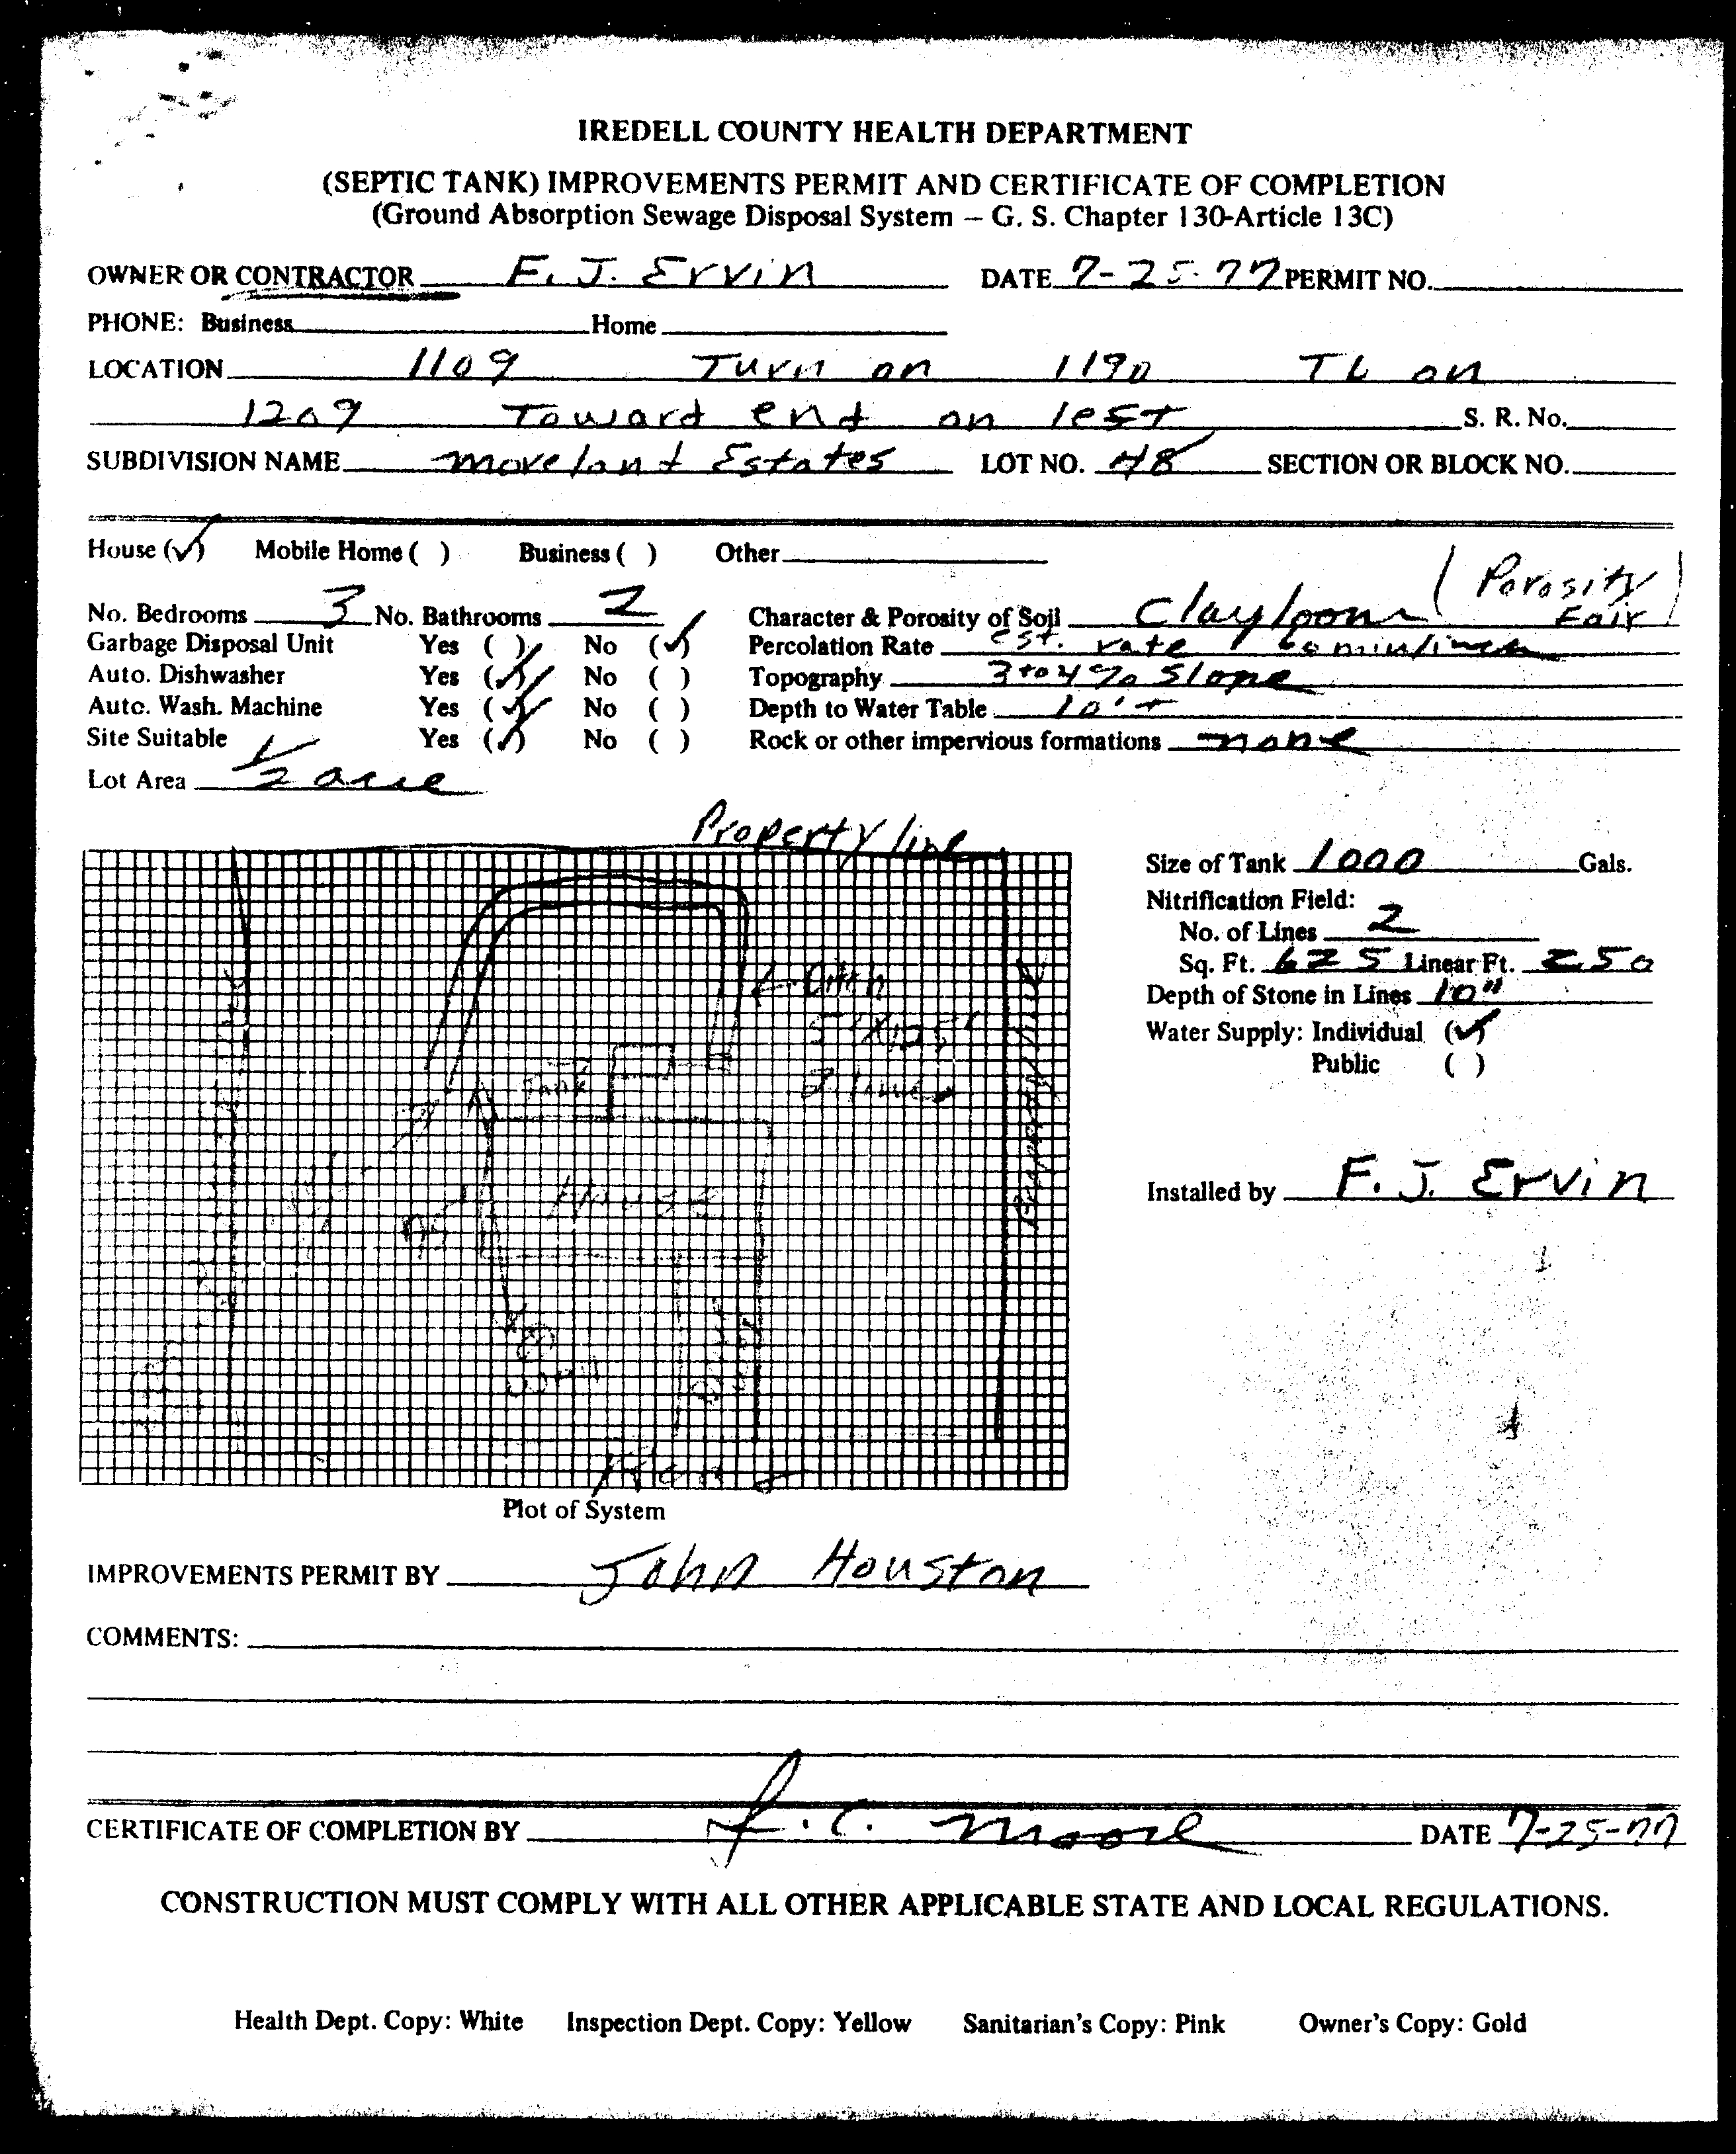 IREDELL COUNTY HEALTH DEPARTMENT
(SEPTIC TANK) IMPROVEMENTS PERMIT AND CERTIFICATE OF COMPLETION
(Ground Absorption Sewage Disposal System – G. S. Chapter 130-Article 13C)
OWNER OR CONTRACTOR F. J. Ervin DATE 7-25-77 PERMIT NO.
PHONE: Business Home
LOCATION 1109 Turn on 1190 TL on
1209 Toward end on left S. R. No.
SUBDIVISION NAME moreland Estates LOT NO. 48 SECTION OR BLOCK NO.
House (✓) Mobile Home ( ) Business ( ) Other
No. Bedrooms 3 No. Bathrooms 2 Character & Porosity of Soil Clay loom (Porosity Fair)
Garbage Disposal Unit Yes ( ) No (✓) Percolation Rate est. rate 60 min/inch
Auto. Dishwasher Yes (✓) No ( ) Topography 3 to 4% Slope
Auto. Wash. Machine Yes (✓) No ( ) Depth to Water Table 10'+
Site Suitable Yes (✓) No ( ) Rock or other impervious formations none
Lot Area 1/2 acre
Property line
Size of Tank 1000 Gals.
Nitrification Field:
No. of Lines 2
Sq. Ft. 625 Linear Ft. 250
Depth of Stone in Lines 10"
Water Supply: Individual (✓)
Public ( )
Ditch
5'X125'
2 lines
Tank
Property line
House
Well
Front
Installed by F. J. Ervin
Plot of System
IMPROVEMENTS PERMIT BY John Houston
COMMENTS:
CERTIFICATE OF COMPLETION BY J. C. Moore DATE 7-25-77
CONSTRUCTION MUST COMPLY WITH ALL OTHER APPLICABLE STATE AND LOCAL REGULATIONS.
Health Dept. Copy: White Inspection Dept. Copy: Yellow Sanitarian's Copy: Pink Owner's Copy: Gold